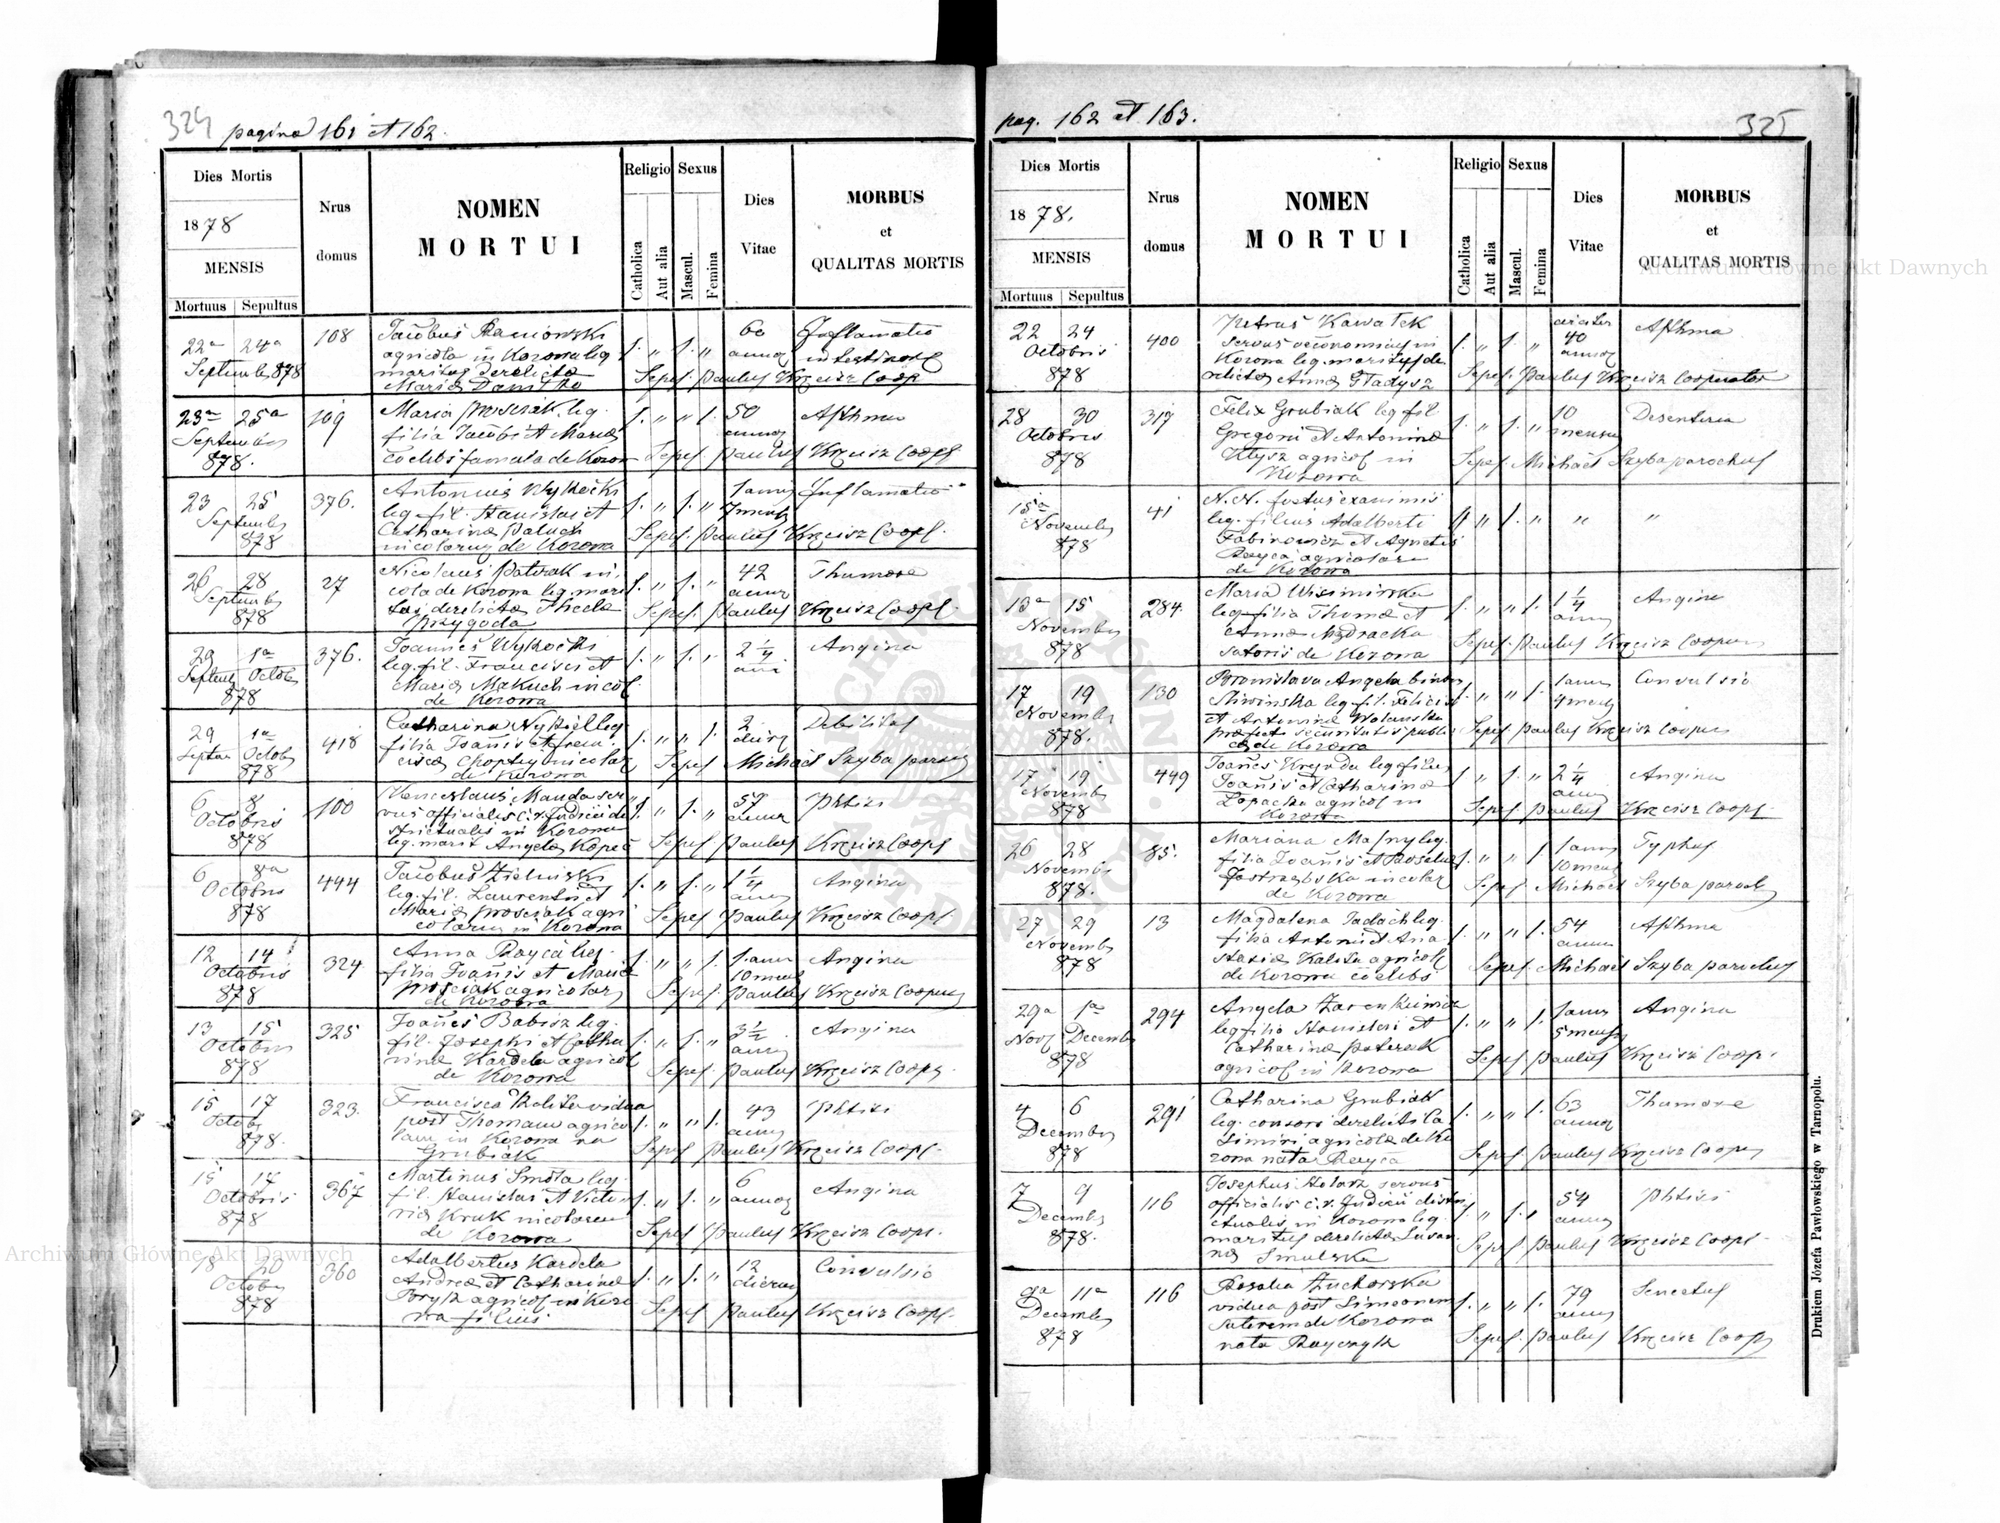 324 pagina 161 et 162.
Dies Mortis
1878
MENSIS
Mortuus Sepultus
Nrus
domus
NOMEN
MORTUI
Religio
Catholica
Aut alia
Sexus
Mascul.
Femina
Dies
Vitae
MORBUS
et
QUALITAS MORTIS
22a 24a
Septembr 878
108
Jacobus
agricola in Kozowa leg.
maritus derelictae
Maria
60
annor
Inflamatio
intestinorum
Sepel. Paulus Krzcisz Coop
23a 25a
Septembris
878.
109
Maria Prosciak leg.
filia Jacobi et Mariae
coelebs famula de Kozow
50
annor
Asthma
Sepel Paulus Krzcisz Coopl
23 25
Septembr
878
376.
Antonius Wykocki
leg. fil. Stanislai et
Catharinae Paluch
incolarum de Kozowa
1 anni
7 mens
Inflamatio
Sepel. Paulus Krzcisz Coopl.
26 28
Septembr
878
27
Nicolaus Paterak in
cola de Kozowa leg. mari
tus derelictae Theclae
Przygoda
42
annor
Thumore
Sepel Paulus Krzcisz Coopl.
29 1a
Septem Octobr
878
376.
Joannes Wykocki
leg. fil. Francisci et
Mariae Makuch incol
de Kozowa
2 1/4
ani
Angina
29 1a
Septem Octob
878
418
Catharina Nykiel leg
filia Joanis et Fran
cisca Choptey incolar
de Kozowa
2
Debilitas
Sepel Michael Szyba paroch
6 8
Octobris
878
100
Venceslaus Manda ser
vus officialis c.r. Judicii di
strictualis in Kozowa
leg. marit Angela Kopeć
57
annor
Phtisi
Sepel Paulus Krzcisz Coopl
6 8a
Octobris
878
444
Jacobus Zielinski
leg. fil. Laurentii et
Mariae Prosciak agri
colarum in Kozowa
1 1/4
anni
Angina
Sepel Paulus Krzcisz Coopl.
12 14
Octobris
878
324
Anna Bayca leg.
filia Joanis et Mariae
Prosciak agricolar
de Kozowa
1 ann
10 mens
Angina
Sepel Paulus Krzcisz Cooper
13 15
Octobris
878
325
Joanes Babisz leg.
fil. Josephi et Catha
rinae Kardela agricol
de Kozowa
3 1/2
anni
Angina
Sepel Paulus Krzcisz Coopl.
15 17
Octobr
878.
323.
Francisca Kalita vidua
post Thomam agrico
lam in Kozowa na
Grubiak
43
annor
Phtisi
Sepel Paulus Krzcisz Coopl.
15 17
Octobris
878
367
Martinus Smola leg
fil. Stanislai et Victo
ria Kruk incolarum
de Kozowa
6
annor
Angina
Sepel Paulus Krzcisz Coopl.
18 20
Octobr
878
360
Adalbertus Kardela
Andreae et Catharinae
Borysz agricol in Kozo
wa filius
12
dierum
Convulsio
Sepel Paulus Krzcisz Coopl.
pag. 162 et 163.
325
Dies Mortis
1878.
MENSIS
Mortuus Sepultus
Nrus
domus
NOMEN
MORTUI
Religio
Catholica
Aut alia
Sexus
Mascul.
Femina
Dies
Vitae
MORBUS
et
QUALITAS MORTIS
22 24
Octobris
878
400
Petrus Kawałek
servus oeconomicus in
Kozowa leg. maritus de
relictae Annae Gładysz
circiter
40
annor
Asthma
Sepel Paulus Krzcisz Cooperator
28 30
Octobris
878
317
Felix Grubiak leg fil
Gregorii et Antoninae
Klysz agricol in
Kozowa
10
mensium
Desenteria
Sepel Michael Szyba parochus
15a
Novembr
878
41
N. N. foetus exanimis
leg. filius Adalberti
Fabinowicz et Agnetis
Bayca agricolar
de Kozowa
13a 15
Novembr
878
284
Maria
leg filia Thomae et
Annae Mądracka
sutoris de Kozowa
1 1/4
anni
Angina
Sepel Paulus Krzcisz Cooper
17 19
Novembr
878.
130
Bronislava Angela
Sliwinska leg. fil. Felicis
et Antoninae
praefect securitatis publi
cae de Kozowa
1 ann
4 mens
Convulsio
Sepel Paulus Krzcisz Cooper
17 19
Novembr
878
449
Joanes Krzywda leg filius
Joanis et Catharinae
Łopacka agricol in
Kozowa
2 1/4
anni
Angina
Sepel Paulus Krzcisz Coopl.
26 28
Novembr
878.
85.
Mariana Maśny leg.
filia Joanis et Rosaliae
Jastrzębska incolar
de Kozowa
1 ann
10 mens
Typhus
Sepel Michael Szyba paroch
27 29
Novembr
878
13
Magdalena Tadach leg.
filia Antonii et Ana
stasiae Kaleta agricol
de Kozowa coelebs
54
annor
Asthma
Sepel Michael Szyba parochus
29a 1a
Nov Decembr
878
294
Angela
leg filia Stanislai et
Catharinae Paterak
agricol in Kozowa
1 ann
5 mens
Angina
Sepel Paulus Krzcisz Coop.
4 6
Decembr
878
291
Catharina Grubiak
leg. consors derelicti Ca
simiri agricolae de Ko
zowa nata Bayca
63
annor
Thumore
Sepel Paulus Krzcisz Cooper
7 9
Decembr
878.
116
Josephus Stolarz servus
officialis c.r. Judicii distri
ctualis in Kozowa leg.
maritus derelictae Susan
nae Smulska
54
annor
Phtisi
Sepel Paulus Krzcisz Coopl.
9a 11a
Decembr
878
116
Rosalia Żuchorska
vidua post Simeonem
sutorem de Kozowa
nata Bayczyk
79
annor
Senectus
Sepel Paulus Krzcisz Coop
Drukiem Józefa Pawłowskiego w Tarnopolu.
Archiwum Główne Akt Dawnych
Archiwum Główne Akt Dawnych
ARCHIWUM GŁÓWNE AKT DAWNYCH